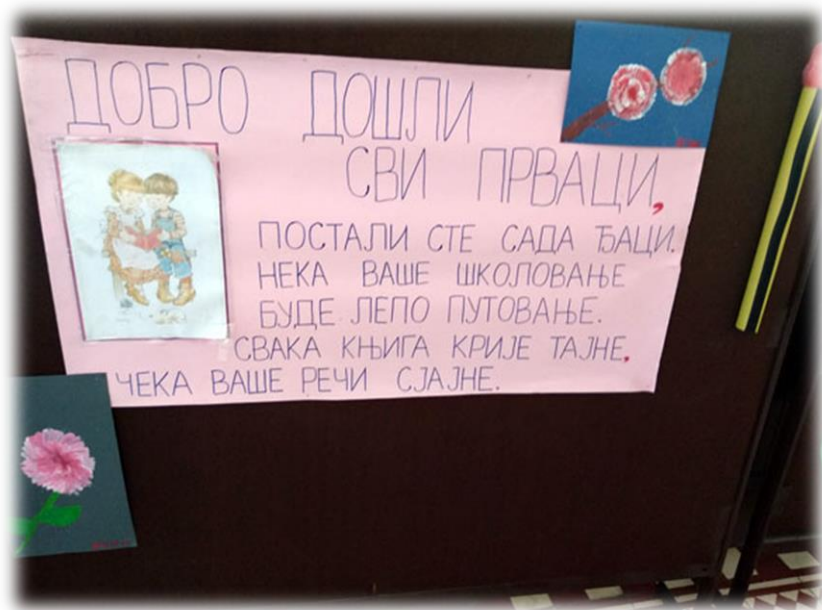 ДОБРО ДОШЛИ
СВИ ПРВАЦИ,
ПОСТАЛИ СТЕ САДА ЂАЦИ.
НЕКА ВАШЕ ШКОЛОВАЊЕ
БУДЕ ЛЕПО ПУТОВАЊЕ.
СВАКА КЊИГА КРИЈЕ ТАЈНЕ,
ЧЕКА ВАШЕ РЕЧИ СЈАЈНЕ.